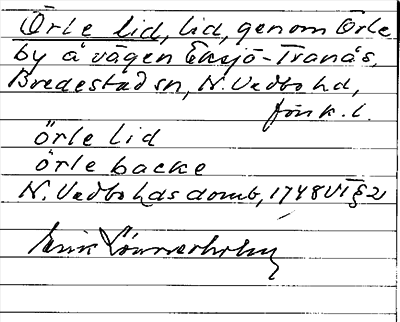 Örle lid, lid, genom Örle
by å vägen Eksjö-Tranås,
Bredestad sn, N. Vedbo hd,
Jönk. l.
örle lid
örle backe
N. Vedbo hds domb, 1748 VI § 21
Erik Lönnerholm